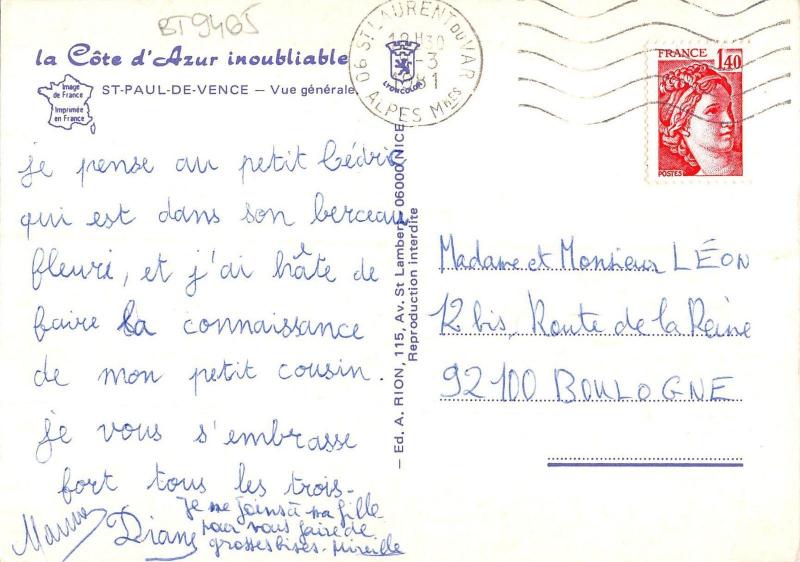 BT9465
la Côte d'Azur inoubliable
Image de France
Imprimée en France
ST-PAUL-DE-VENCE – Vue générale.
06 ST LAURENT DU VAR
18H30
-3
1981
ALPES Mmes
LYONCOLOR
FRANCE
1,40
POSTES
je pense au petit Cédric
qui est dans son berceau
fleuri, et j'ai hâte de
faire la connaissance
de mon petit cousin.
je vous s'embrasse
fort tous les trois-
Diane
je me joins à ma fille
pour vous faire de
grosses bises. Mireille
— Ed. A. RION, 115, Av. St Lambert, 06000 NICE
Reproduction interdite
Madame et Monsieur LÉON
12 bis, Route de la Reine
92100 BOULOGNE